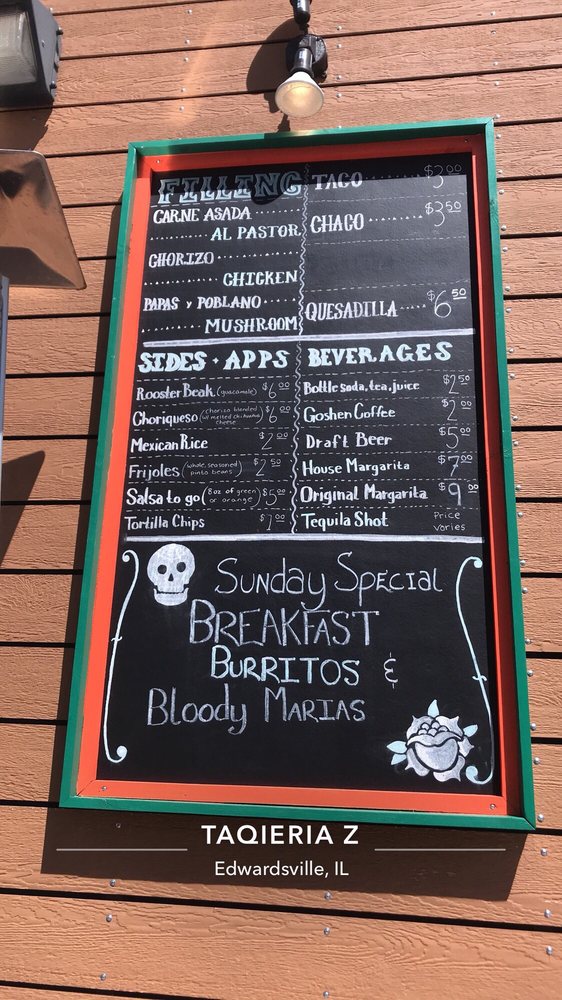 FILLING
CARNE ASADA
AL PASTOR
CHORIZO
CHICKEN
PAPAS Y POBLANO
MUSHROOM
TACO $3.00
CHACO $3.50
QUESADILLA $6.50
SIDES + APPS
Rooster Beak (guacamole) $6.00
Choriqueso (Chorizo blended w/ melted chihuahua cheese) $6.00
Mexican Rice $2.00
Frijoles (whole, seasoned pinto beans) $2.50
Salsa to go (8oz of green or orange) $5.00
Tortilla Chips $1.00
BEVERAGES
Bottle soda, tea, juice $2.50
Goshen Coffee $2.00
Draft Beer $5.00
House Margarita $7.00
Original Margarita $9.00
Tequila Shot Price varies
Sunday Special
BREAKFAST
BURRITOS &
Bloody MARIAS
TAQIERIA Z
Edwardsville, IL